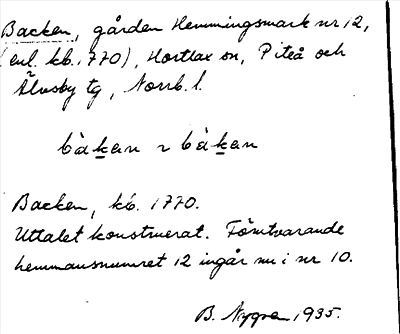 Backen, gården Hemmingsmark nr 12,
(enl. kb. 1770), Hortlax sn, Piteå och
Älvsby tg, Norrb. l.
bàkan ~ bákan
Backen, kb. 1770.
Uttalet konstruerat. Förutvarande
hemmansnumret 12 ingår nu i nr 10.
B. Nygren 1935.